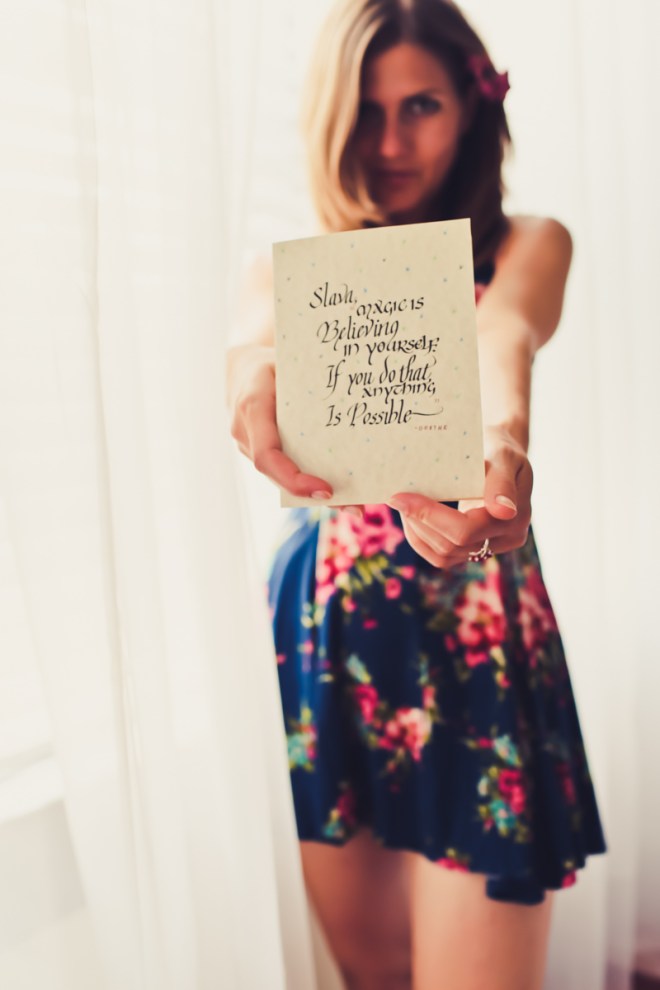 Slava,
MAGIC IS
Believing
IN YOURSELF.
If you do that,
ANYTHING
Is Possible
-GOETHE